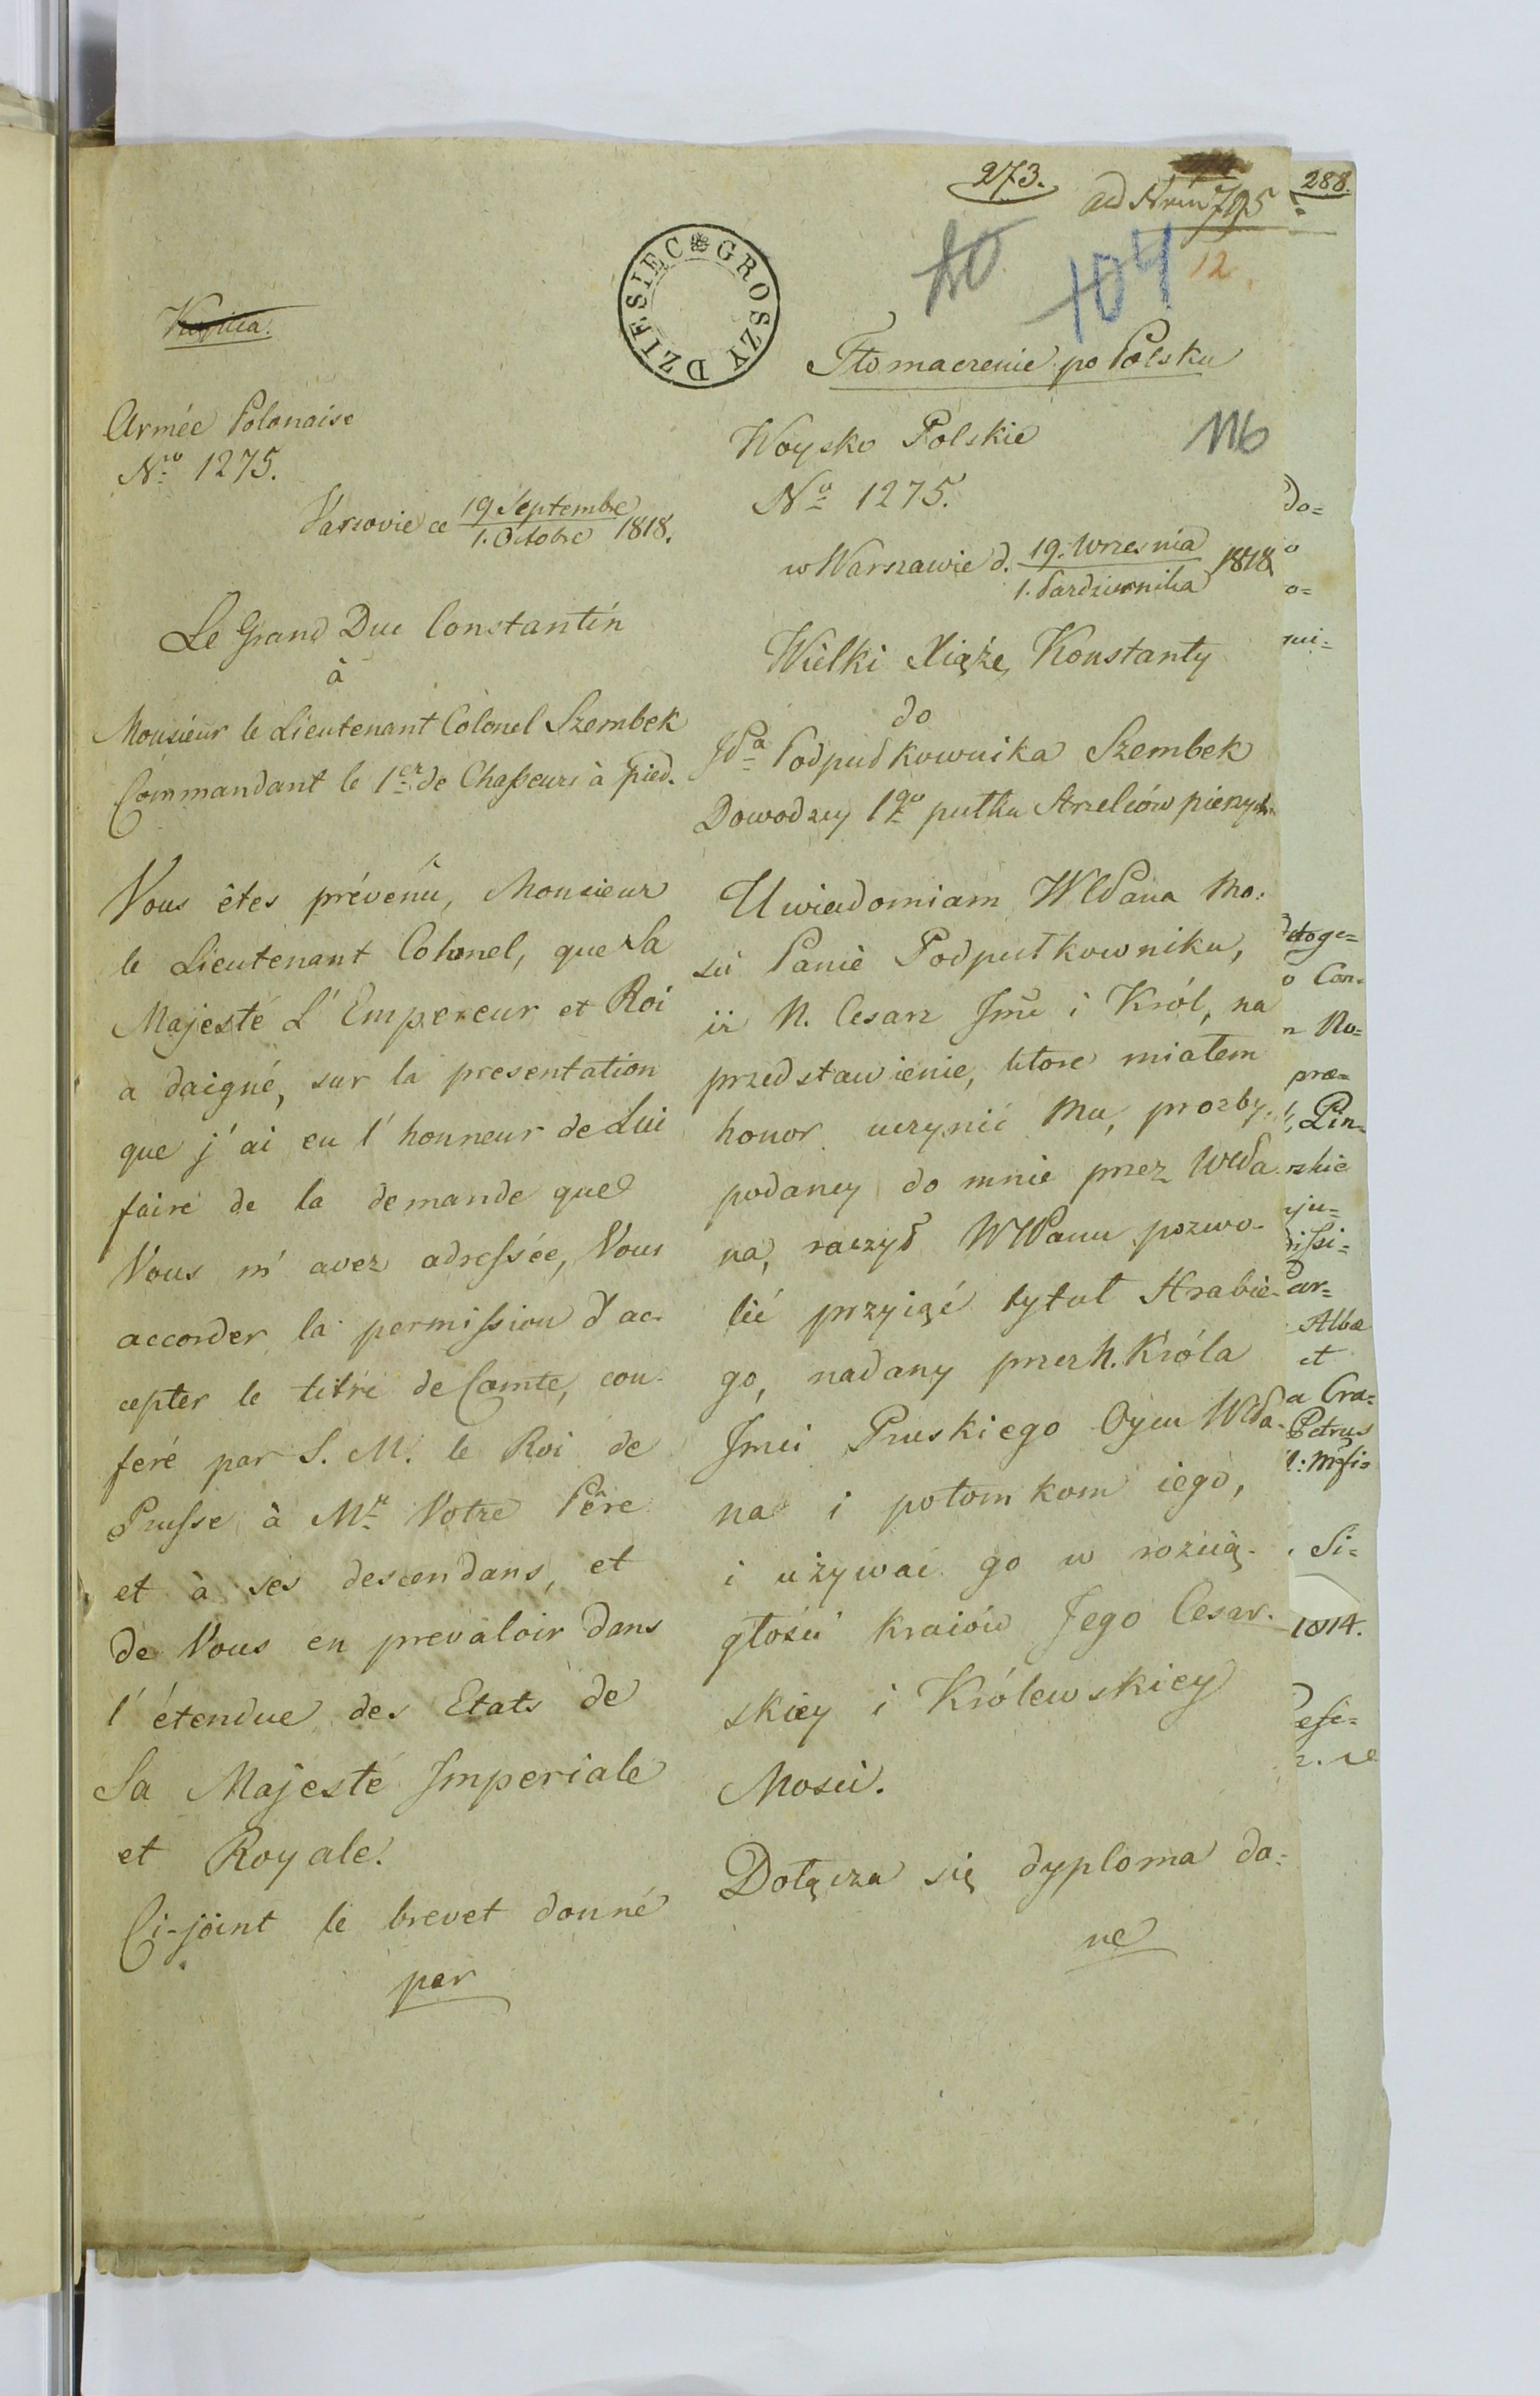 273.
ad Nrm 795
288.
104
12
DZIESIEC GROSZY
Kopiia.
Tłomaczenie po Polsku
116
Armée Polonaise
Nro 1275.
Varsovie ce 19 Septembre / 1. Octobre 1818.
Le Grand Duc Constantin
à
Monsieur le Lieutenant Colonel Szembek
Commandant le 1er de Chasseurs à Pied.
Vous êtes prévenû, Monsieur
le Lieutenant Colonel, que Sa
Majesté L'Empereur et Roi
a daigné, sur la presentation
que j'ai eu l'honneur de Lui
faire de la demande que
Vous m'avez adressée, Vous
accorder la permission d'ac-
cepter le titre de Comte, con-
feré par S. M. le Roi de
Prusse à Mr Votre Pêre
et à ses descendans, et
de Vous en prevaloir dans
l'étendue des Etats de
Sa Majesté Imperiale
et Royale.
Ci-joint le brevet donné
par
Woysko Polskie
No 1275.
w Warszawie d. 19. Wrzesnia / 1. Pazdziernika 1818
Wielki Xiąże Konstanty
do
JPa Podpułkownika Szembek
Dowodzcy 1go pułku Strzelców pieszych
Uwiadomiam WPana Mo-
sci Panie Podpułkowniku,
iż N. Cesarz Jmć i Król, na
przedstawienie, ktore miałem
honor uczynić Mu, prozby
podaney do mnie przez WPa-
na, raczył WPanu pozwo-
lić przyiąć tytuł Hrabie-
go, nadany przez N. Króla
Jmci Pruskiego Oycu WPa-
na i potomkom iego,
i używać go w rozcią-
głości kraiów Jego Cesar-
skiey i Królewskiey
Mosci.
Dołącza się dyploma da=
ne
do=
o=
o Con-
n No=
præ=
Pin=
rskie
yju=
dissi=
Par=
Albæ
et
a Cra=
Petrus
Si=
1814.